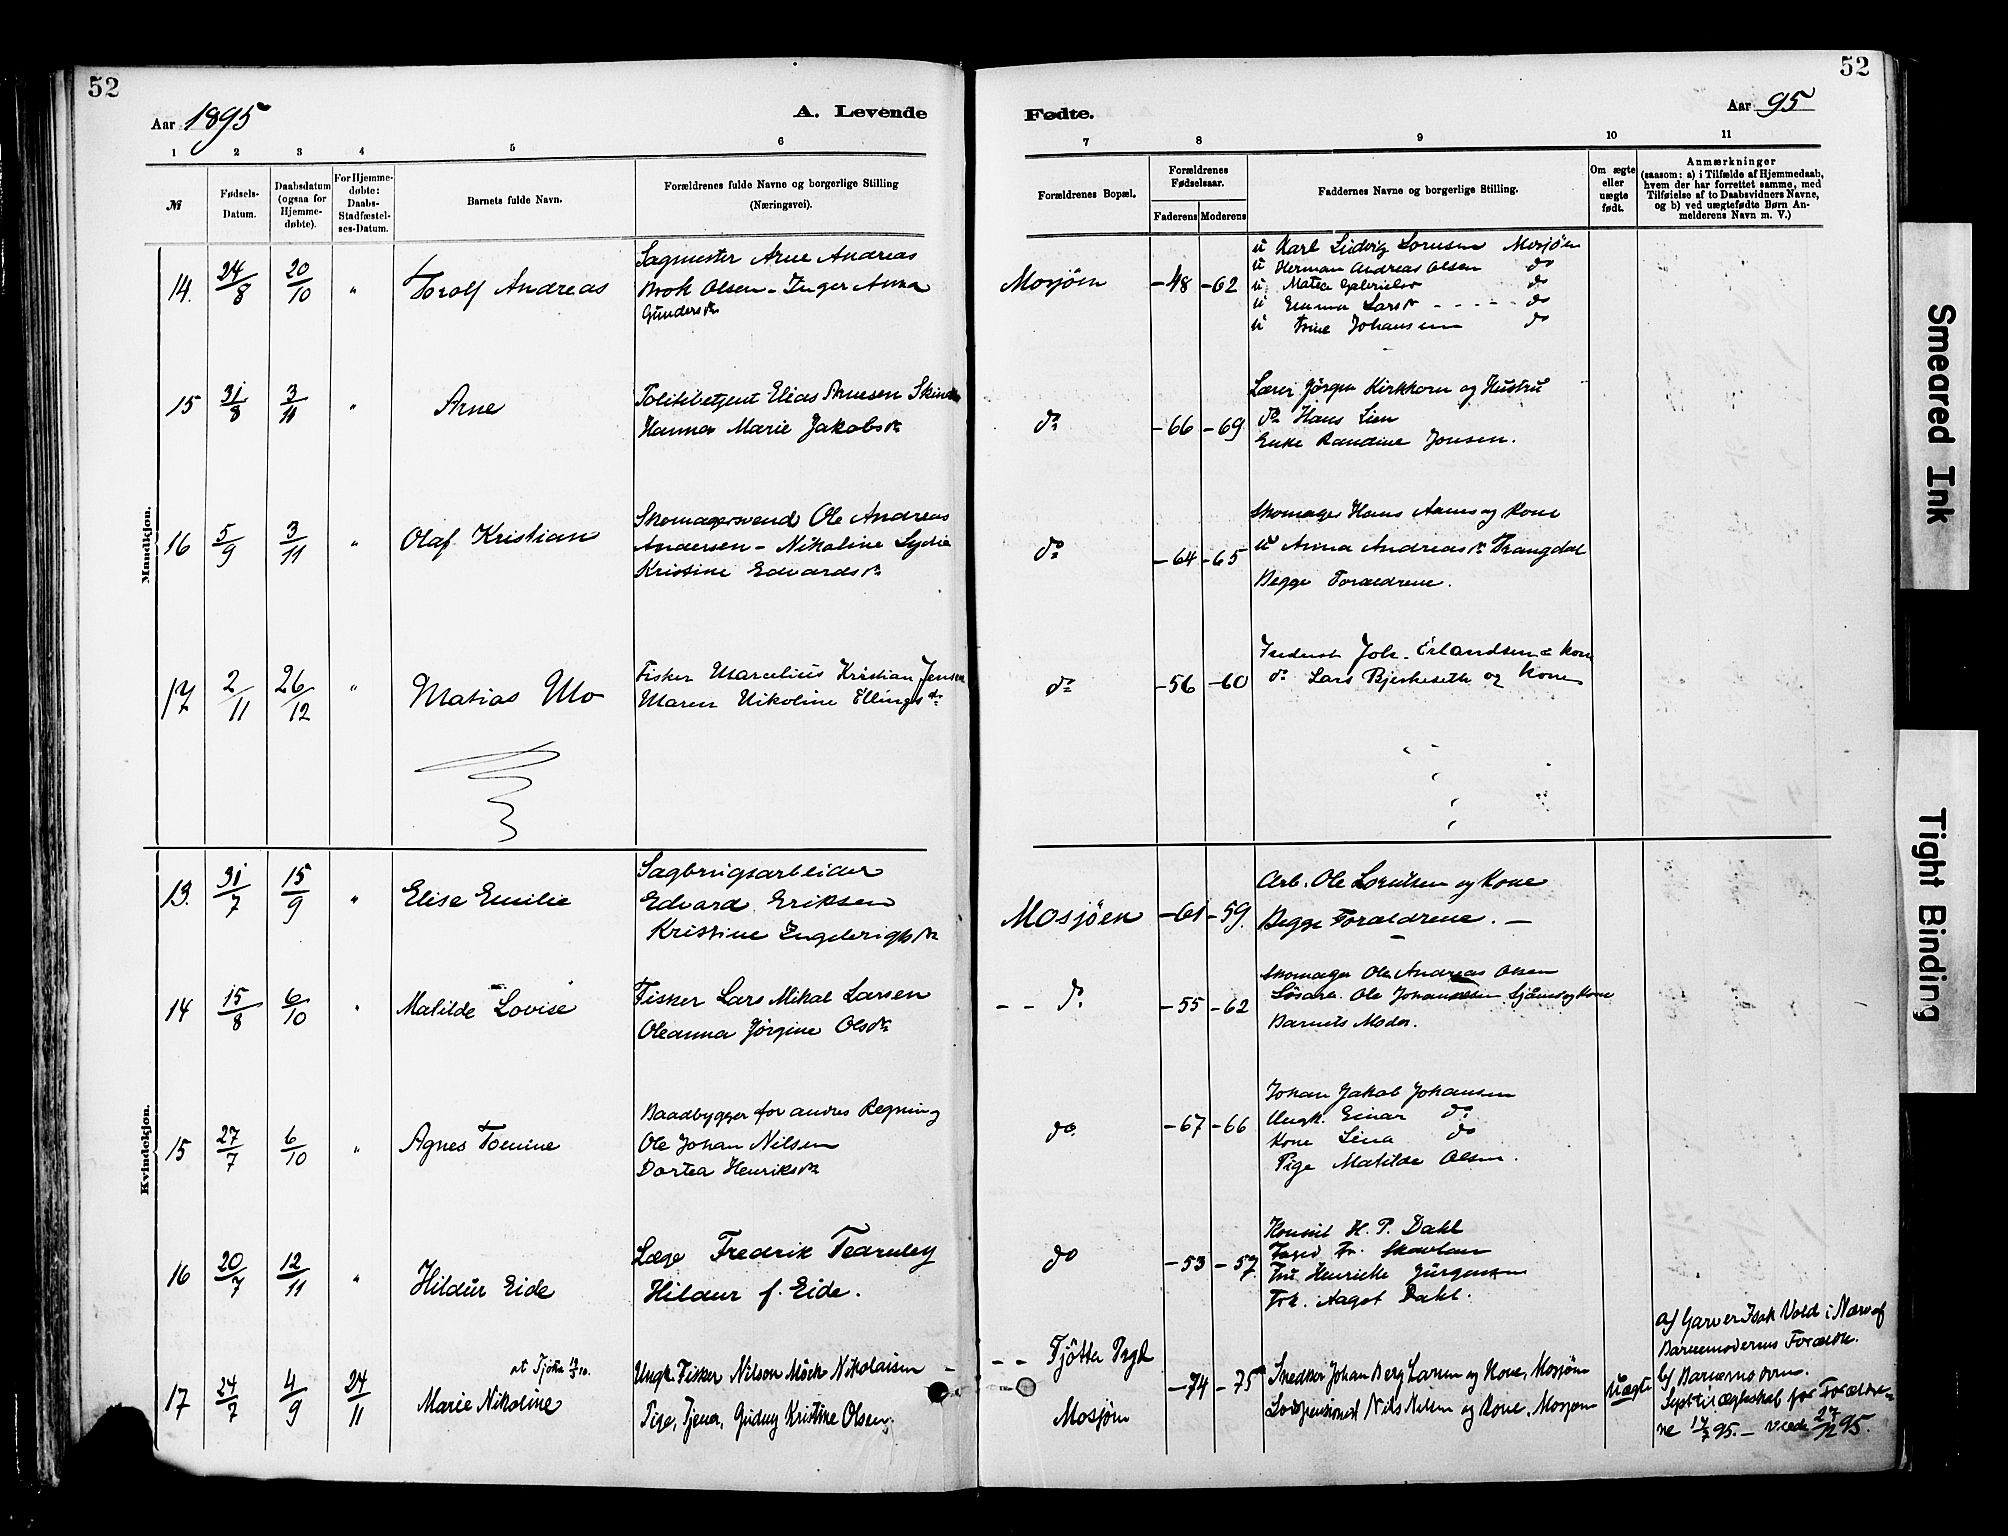 52
Aar 1895
A. Levende
1 2 3 4 5 6
№
Fødsels-Datum.
Daabsdatum (ogsaa for Hjemmedøbte).
For Hjemmedøbte: Daabs-Stadfæstelses-Datum.
Barnets fulde Navn.
Forældrenes fulde Navne og borgerlige Stilling
(Næringsvei).
Mandkjøn.
14. 24/8 20/10 " Torolf Andreas
Sagmester Arne Andreas
Brok Olsen - Inger Anna
Gundersdr.
15 31/8 3/11 " Arne
Politibetjent Elias Arnesen
Hanna Marie Jakobsdr.
16 5/9 3/11 " Olaf Kristian
Skomagersvend Ole Andreas
Andersen - Nikoline Lydia
Kristine Edvardsdr.
17 2/11 26/12 " Matias Mo
Fisker Marcelius Kristian Jensen
Maren Nikoline Ellingsdr.
Kvindekjøn.
13. 31/7 15/9 " Elise Emilie
Sagbrugsarbeider
Edvard Eriksen
Kristine Ingebrigtsdr.
14 15/8 6/10 " Matilde Lovise
Fisker Lars Mikal Larsen
Oleanna Jørgine Olsdr.
15 27/7 6/10 " Agnes Tomine
Baadbygger for andres Regning
Ole Johan Nilsen
Dortea Henriksdr.
16 20/7 12/11 " Hildur Eide
Læge Fredrik Tearnley
Hildur f. Eide.
17 24/7 4/9 24/11 Marie Nikoline
Ungk. Fisker Nilson Møch Nikolaisen -
Pige, Tjener, Gudny Kristine Olsen,
52
Fødte.
Aar 95
7 8 9 10 11
Forældrenes Bopæl.
Forældrenes Fødselsaar.
Faderens Moderens
Faddernes Navne og borgerlige Stilling.
Om ægte eller uægte født.
Anmærkninger
(saasom: a) i Tilfælde af Hjemmedaab,
hvem der har forrettet samme, med
Tilføielse af to Daabsvidners Navne,
og b) ved uægtefødte Børn Anmelderens
Navn m. V.)
Mosjøen -48 -62
u Karl Ludvig Mosjøen
u Herman Andreas Olsen do
u Matea do
u Emma Larsdr. do
u Trine Johansen do
do -66 -69
Lærer Jørgen Kirkhorn og Hustru
do Hans Lien
Enke Randine Jonsen.
do -64 -65
Skomager Hans og Kone
u Anna Andreasdr.
Begge Forældrene.
do -56 -60
Joh. Erlandsen & Kone
do Lars Bjerkeseth og Kone
Mosjøen -61 -59.
Arb. Ole Lorntsen og Kone
Begge Forældrene. -
- - do -55 -62
Skomager Ole Andreas Olsen
Ole Johannesen og Kone
Barnets Moder.
do. -67 -66
Johan Jakob Johansen
Ungk. Einar do
Kone Lina do
Pige Matilde Olsen.
do -53 -57.
Konsul H. P. Dahl
Foged Fr. Skavlan
Fru Henriette Jürgensen
Frk. Aagot Dahl.
- - Tjøtta Prgd
Mosjøen
-74 -75
Snedker Johan Berg Larsen og Kone, Mosjøen
Nils Nilsen og Kone, Mosjøen
Uægte
a/ Garver Isak Vold i Nærv af
Barnemoderens Forældre.
b/ Barnemoderen.
for Forældre-
ne 95. - 95.
Smeared Ink
Tight Binding